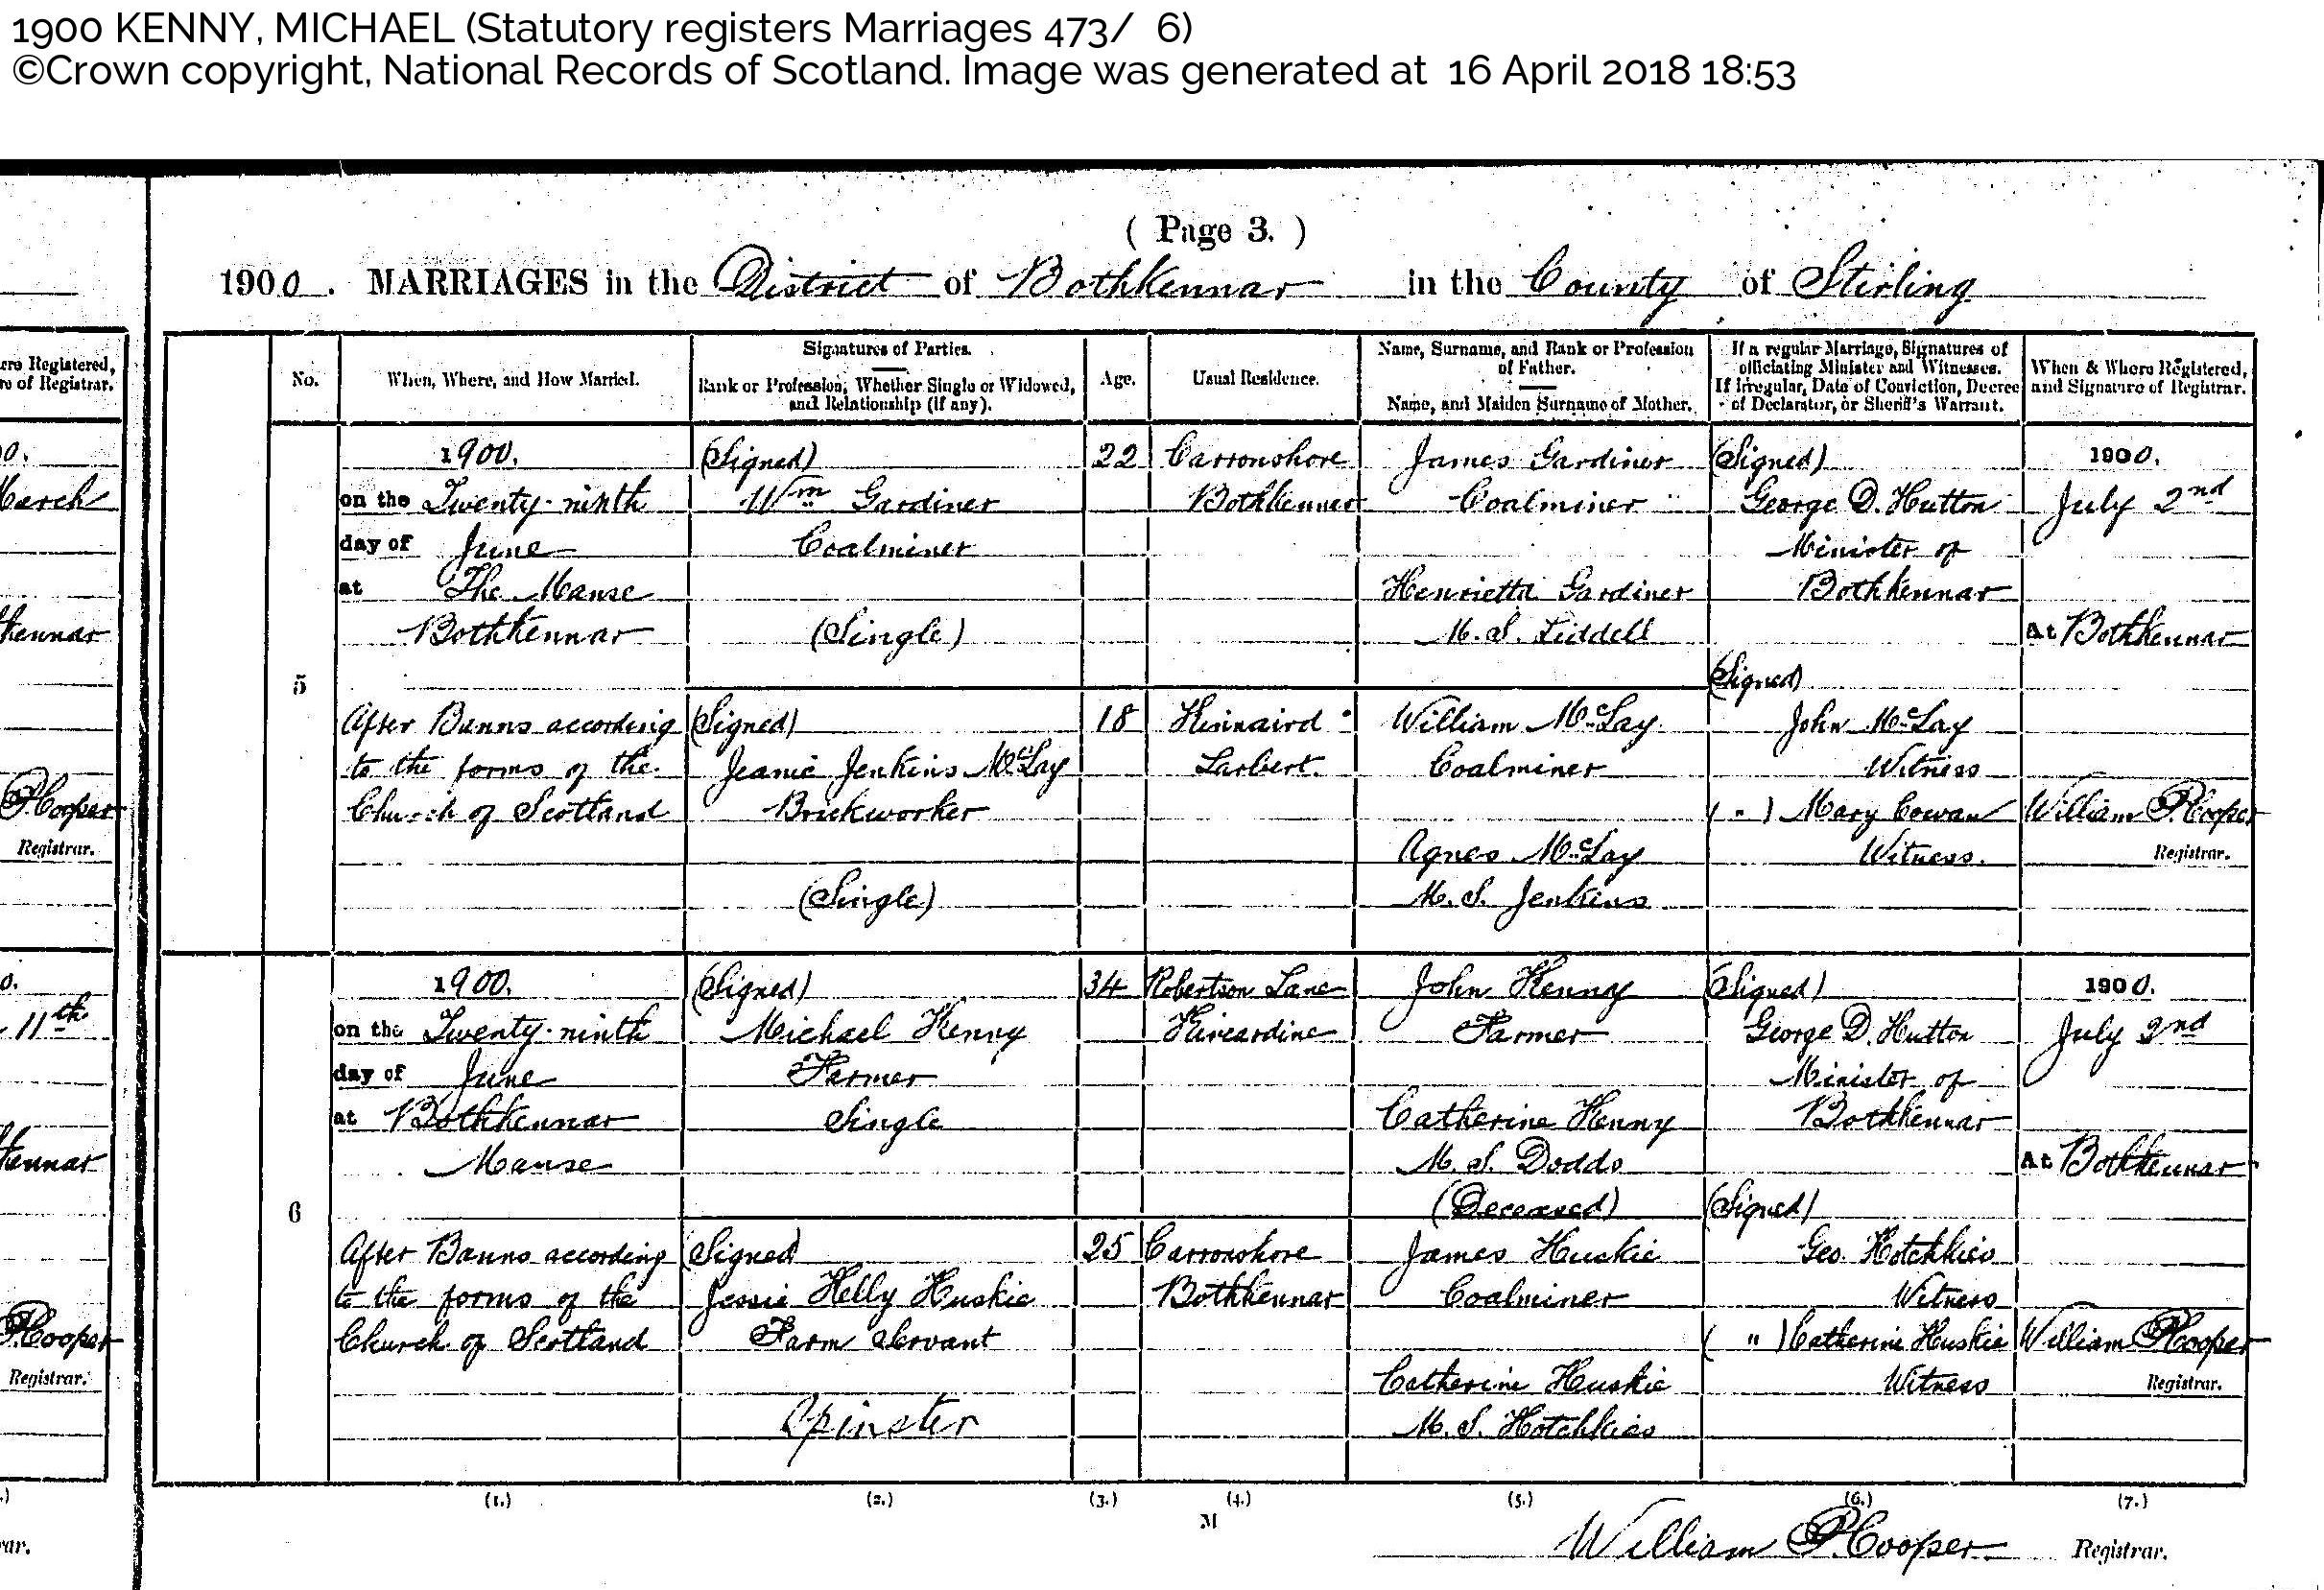 1900 KENNY, MICHAEL (Statutory registers Marriages 473/ 6)
©Crown copyright, National Records of Scotland. Image was generated at 16 April 2018 18:53
( Page 3. )
1900. MARRIAGES in the District of Bothkennar in the County of Stirling
ere Registered,
re of Registrar.
No.
When, Where, and How Married.
Signatures of Parties.
Rank or Profession, Whether Single or Widowed,
and Relationship (if any).
Age.
Usual Residence.
Name, Surname, and Rank or Profession
of Father.
Name, and Maiden Surname of Mother.
If a regular Marriage, Signatures of
officiating Minister and Witnesses.
If Irregular, Date of Conviction, Decree
of Declarator, or Sheriff's Warrant.
When & Where Registered,
and Signature of Registrar.
0.
March
kennar
P. Cooper
Registrar.
5
1900.
on the Twenty-ninth
day of June
at The Manse
Bothkennar
After Banns according
to the forms of the
Church of Scotland
(Signed)
Wm Gardiner
Coalminer
(Single)
(Signed)
Jeanie Jenkins McLay
Brickworker
(Single)
22
18
Carronshore
Bothkennar
Kinnaird
Larbert.
James Gardiner
Coalminer
Henrietta Gardiner
M.S. Liddell
William McLay
Coalminer
Agnes McLay
M.S. Jenkins
(Signed)
George D. Hutton
Minister of
Bothkennar
(Signed)
John McLay
Witness
( " ) Mary Cowan
Witness.
1900.
July 2nd
At Bothkennar
William P. Cooper
Registrar.
0.
11th
kennar
P. Cooper
Registrar.
6
1900.
on the Twenty-ninth
day of June
at Bothkennar
Manse
After Banns according
to the forms of the
Church of Scotland
(Signed)
Michael Kenny
Farmer
Single
(Signed)
Jessie Kelly Huskie
Farm Servant
Spinster
34
25
Robertson Lane
Kincardine
Carronshore
Bothkennar
John Kenny
Farmer
Catherine Kenny
M.S. Dodds
(Deceased)
James Huskie
Coalminer
Catherine Huskie
M.S. Hotchkies
(Signed)
George D. Hutton
Minister of
Bothkennar
(Signed)
Geo. Hotchkies
Witness
( " ) Catherine Huskie
Witness
1900.
July 2nd
At Bothkennar
William P. Cooper
Registrar.
(1.) (2.) (3.) (4.) (5.) (6.) (7.)
M
William P. Cooper Registrar.
rar.